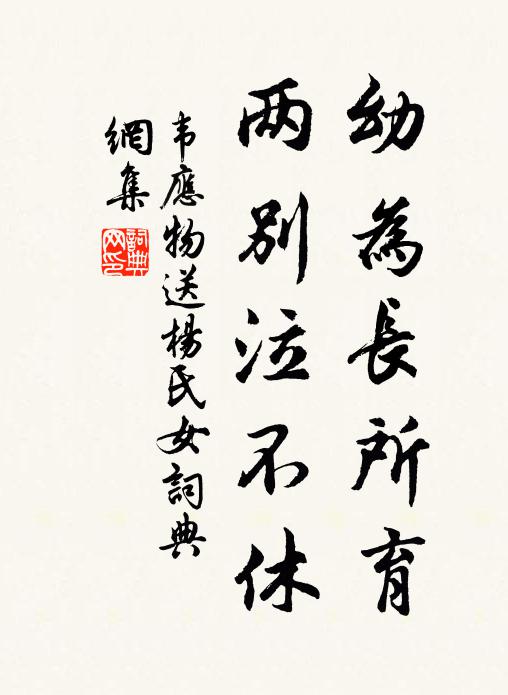 幼為長所育
两別泣不休
韦應物送楊氏女詞典
網集
詞典
网印